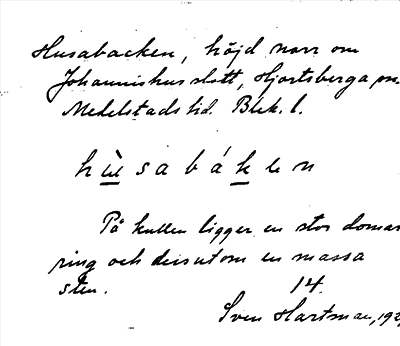 Husabacken, höjd norr om
Johannishus slott, Hjortsberga sn.
Medelstads hd. Blek. l.
hùsabákен
På kullen ligger en stor domar
ring och dessutom en massa
sten. 14.
Sven Hartman, 192